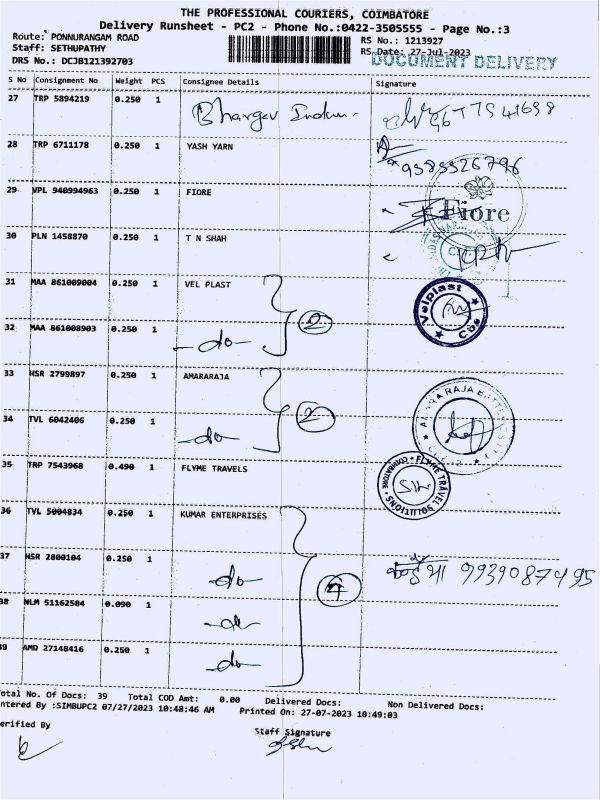 THE PROFESSIONAL COURIERS, COIMBATORE
Delivery Runsheet - PC2 - Phone No.:0422-3505555 - Page No.:3
Route: PONNURANGAM ROAD RS No.: 1213927
Staff: SETHUPATHY RS Date: 27-Jul-2023
DRS No.: DCJB121392703 DOCUMENT DELIVERY
S No Consignment No Weight PCS Consignee Details Signature
27 TRP 5894219 0.250 1 Bhargav
28 TRP 6711178 0.250 1 YASH YARN
29 VPL 940994963 0.250 1 FIORE Fiore
30 PLN 1458870 0.250 1 T N SHAH
31 MAA 861009004 0.250 1 VEL PLAST Velplast Cbe
32 MAA 861008903 0.250 1 -do- 2
33 HSR 2799897 0.250 1 AMARARAJA
34 TVL 6042406 0.250 1 -do- 2
35 TRP 7543968 0.490 1 FLYME TRAVELS FLYME TRAVEL SOLUTIONS COIMBATORE
36 TVL 5004834 0.250 1 KUMAR ENTERPRISES
37 HSR 2800104 0.250 1 -do- 4 9939087495
38 NLM 51162584 0.090 1 -do-
39 AMD 27148416 0.250 1 -do-
Total No. Of Docs: 39 Total COD Amt: 0.00 Delivered Docs: Non Delivered Docs:
ntered By :SIMBUPC2 07/27/2023 10:48:46 AM Printed On: 27-07-2023 10:49:03
erified By Staff Signature